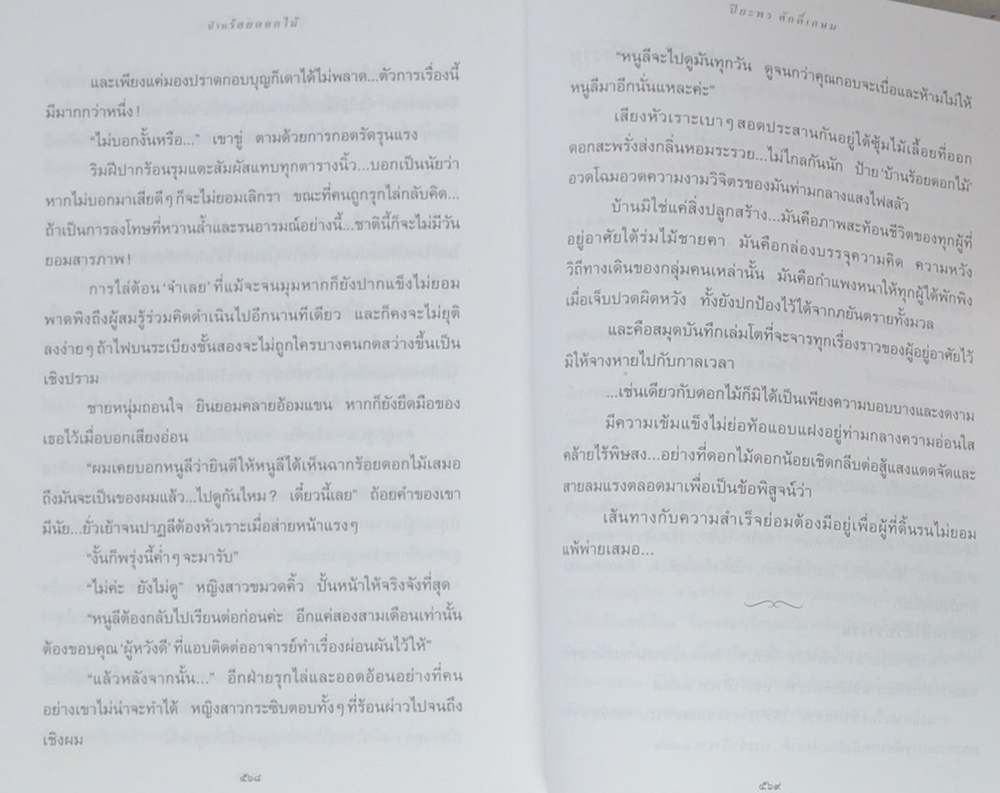 บ้านร้อยดอกไม้
และเพียงแค่มองปราดกอบบุญก็เดาได้ไม่พลาด...ตัวการเรื่องนี้
มีมากกว่าหนึ่ง!
"ไม่บอกงั้นหรือ..." เขาขู่ ตามด้วยการกอดรัดรุนแรง
ริมฝีปากร้อนรุมแตะสัมผัสแทบทุกตารางนิ้ว...บอกเป็นนัยว่า
หากไม่บอกมาเสียดีๆ ก็จะไม่ยอมเลิกรา ขณะที่คนถูกรุกไล่กลับคิด...
ถ้าเป็นการลงโทษที่หวานล้ำและรนอารมณ์อย่างนี้...ชาตินี้ก็จะไม่มีวัน
ยอมสารภาพ!
การไล่ต้อน 'จำเลย' ที่แม้จะจนมุมหากก็ยังปากแข็งไม่ยอม
พาดพิงถึงผู้สมรู้ร่วมคิดดำเนินไปอีกนานทีเดียว และก็คงจะไม่ยุติ
ลงง่ายๆ ถ้าไฟบนระเบียงชั้นสองจะไม่ถูกใครบางคนกดสว่างขึ้นเป็น
เชิงปราม
ชายหนุ่มถอนใจ ยินยอมคลายอ้อมแขน หากก็ยังยึดมือของ
เธอไว้เมื่อบอกเสียงอ่อน
"ผมเคยบอกหนูลีว่ายินดีให้หนูลีได้เห็นฉากร้อยดอกไม้เสมอ
ถึงมันจะเป็นของผมแล้ว...ไปดูกันไหม? เดี๋ยวนี้เลย" ถ้อยคำของเขา
มีนัย...ยั่วเย้าจนปาฏลีต้องหัวเราะเมื่อส่ายหน้าแรงๆ
"งั้นก็พรุ่งนี้ค่ำๆ จะมารับ"
"ไม่ค่ะ ยังไม่ดู" หญิงสาวขมวดคิ้ว ปั้นหน้าให้จริงจังที่สุด
"หนูลีต้องกลับไปเรียนต่อก่อนค่ะ อีกแค่สองสามเดือนเท่านั้น
ต้องขอบคุณ 'ผู้หวังดี' ที่แอบติดต่ออาจารย์ทำเรื่องผ่อนผันไว้ให้"
"แล้วหลังจากนั้น..." อีกฝ่ายรุกไล่และออดอ้อนอย่างที่คน
อย่างเขาไม่น่าจะทำได้ หญิงสาวกระซิบตอบทั้งๆ ที่ร้อนผ่าวไปจนถึง
เชิงผม
๕๖๘
ปิยะพร ศักดิ์เกษม
"หนูลีจะไปดูมันทุกวัน ดูจนกว่าคุณกอบจะเบื่อและห้ามไม่ให้
หนูลีมาอีกนั่นแหละค่ะ"
เสียงหัวเราะเบาๆ สอดประสานกันอยู่ใต้ซุ้มไม้เลื้อยที่ออก
ดอกสะพรั่งส่งกลิ่นหอมระรวย...ไม่ไกลกันนัก ป้าย 'บ้านร้อยดอกไม้'
อวดโฉมอวดความงามวิจิตรของมันท่ามกลางแสงไฟสลัว
บ้านมิใช่แค่สิ่งปลูกสร้าง...มันคือภาพสะท้อนชีวิตของทุกผู้ที่
อยู่อาศัยใต้ร่มไม้ชายคา มันคือกล่องบรรจุความคิด ความหวัง
วิถีทางเดินของกลุ่มคนเหล่านั้น มันคือกำแพงหนาให้ทุกผู้ได้พักพิง
เมื่อเจ็บปวดผิดหวัง ทั้งยังปกป้องไว้ได้จากภยันตรายทั้งมวล
และคือสมุดบันทึกเล่มโตที่จะจารทุกเรื่องราวของผู้อยู่อาศัยไว้
มิให้จางหายไปกับกาลเวลา
...เช่นเดียวกับดอกไม้ก็มิได้เป็นเพียงความบอบบางและงดงาม
มีความเข้มแข็งไม่ย่อท้อแอบแฝงอยู่ท่ามกลางความอ่อนใส
คล้ายไร้พิษสง...อย่างที่ดอกไม้ดอกน้อยเชิดกลีบต่อสู้แสงแดดจัดและ
สายลมแรงตลอดมาเพื่อเป็นข้อพิสูจน์ว่า
เส้นทางกับความสำเร็จย่อมต้องมีอยู่เพื่อผู้ที่ดิ้นรนไม่ยอม
แพ้พ่ายเสมอ...
๕๖๙